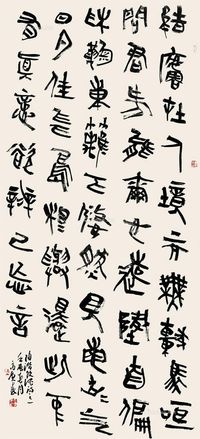 結廬在人境而無車馬喧
問君何能爾心遠地自偏
采鞠東籬下悠然見南山=气
日夕佳飛鳥相與還此中
有真意欲辨已忘言
陶潛飲酒詩之一